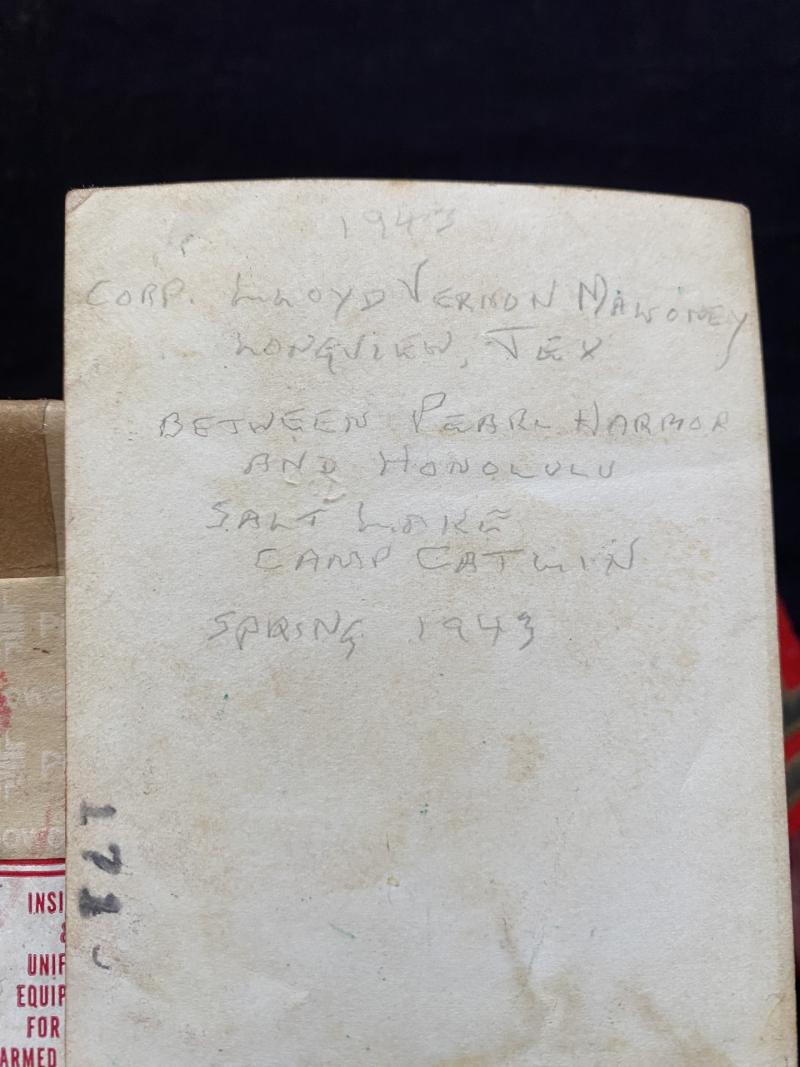 1943
CORP. LLOYD VERNON MALONEY
LONGVIEW, TEX
BETWEEN PEARL HARBOR
AND HONOLULU
SALT LAKE
CAMP CATLIN
SPRING 1943
171
INSI
&
UNIF
EQUIP
FOR
ARMED